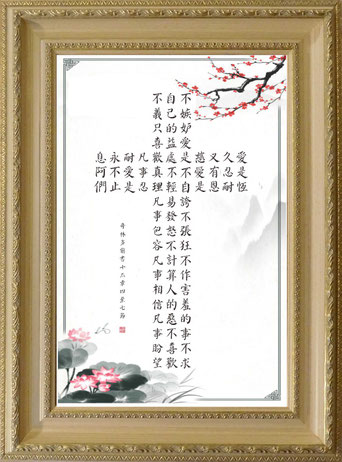 愛是恆
久忍耐
又有恩
慈愛是
不嫉妒愛是不自誇不張狂不作害羞的事不求
自己的益處不輕易發怒不計算人的惡不喜歡
不義只喜歡真理凡事包容凡事相信凡事盼望
凡事忍
耐愛是
永不止
息阿們
哥林多前書十三章四至七節